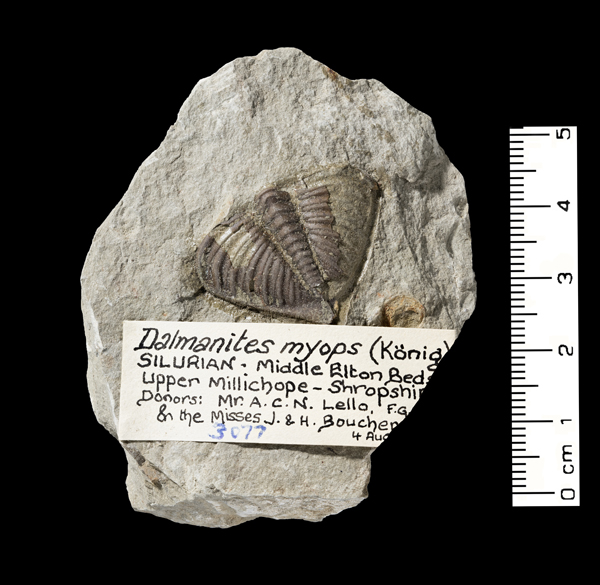 Dalmanites myops (König)
SILURIAN - Middle Elton Beds
Upper Millichope - Shropshir
Donors: Mr. A. C. N. Lello, F.G.
& the Misses J. & H. Boucher
3077 4 Aug
0 cm 1 2 3 4 5